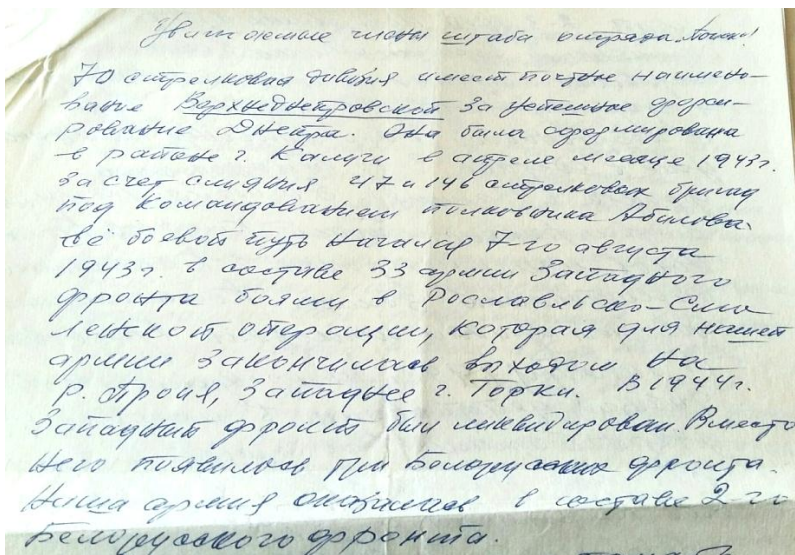 Уважаемые члены штаба отряда „Поиск"!
70 стрелковая дивизия имеет почетное наимено-
вание Верхнеднепровской за успешное форси-
рование Днепра. Она была сформирована
в районе г. Калуги в апреле месяце 1943г.
за счет слияния 47 и 146 стрелковых бригад
под командованием полковника Абилова.
Её боевой путь начался 7-го августа
1943г. в составе 33 армии Западного
фронта боями в Рославльско-Смо
ленской операции, которая для нашей
армии закончилась выходом на
р. Проня, западнее г. Горки. В 1944г.
Западный фронт был ликвидирован. Вместо
него появилось три Белорусских фронта.
Наша армия оказалась в составе 2-го
Белорусского фронта.